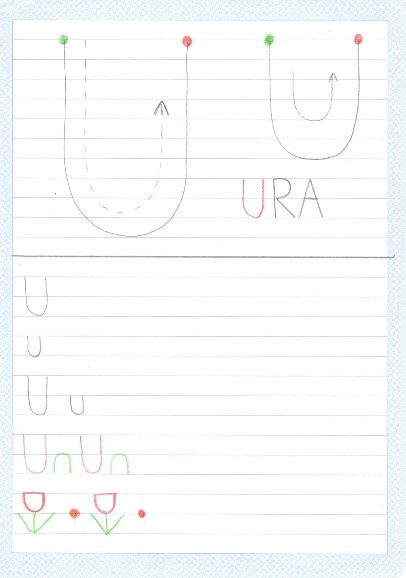 U U
URA
U
u
U u
U n U n